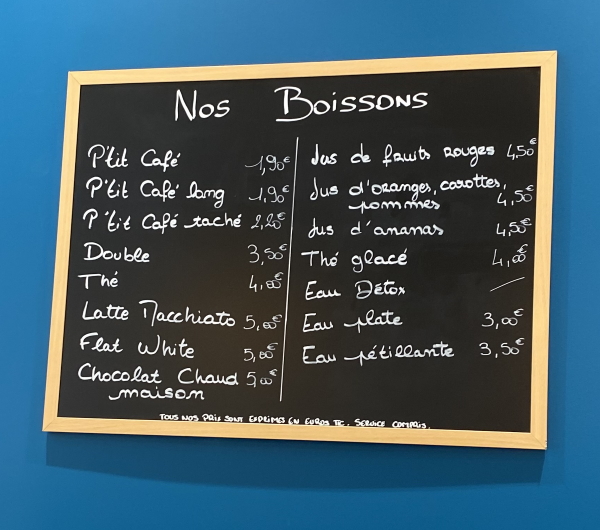 Nos Boissons
P'tit Café 1,90€
P'tit Café long 1,90€
P'tit Café taché 2,20€
Double 3,50€
Thé 4,00€
Latte Macchiato 5,00€
Flat White 5,00€
Chocolat Chaud 5,00€
maison
Jus de fruits rouges 4,50€
Jus d'oranges, carottes,
pommes 4,50€
Jus d'ananas 4,50€
Thé glacé 4,00€
Eau Détox —
Eau plate 3,00€
Eau pétillante 3,50€
TOUS NOS PRIX SONT EXPRIMES EN EUROS TTC. SERVICE COMPRIS.